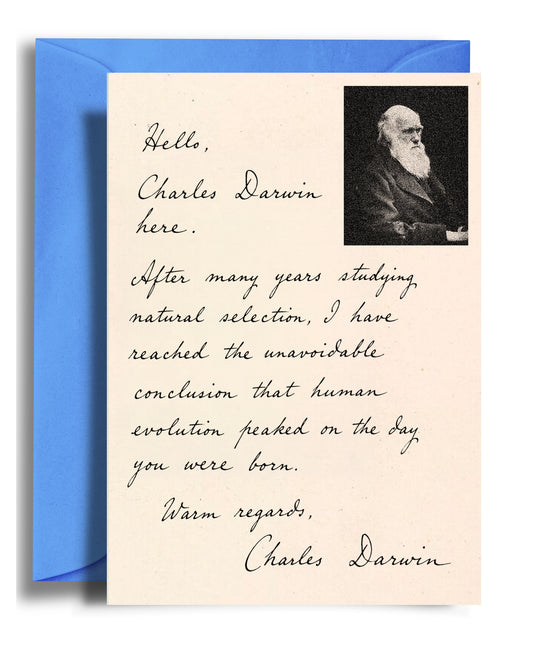 Hello,
Charles Darwin
here.
After many years studying
natural selection, I have
reached the unavoidable
conclusion that human
evolution peaked on the day
you were born.
Warm regards,
Charles Darwin